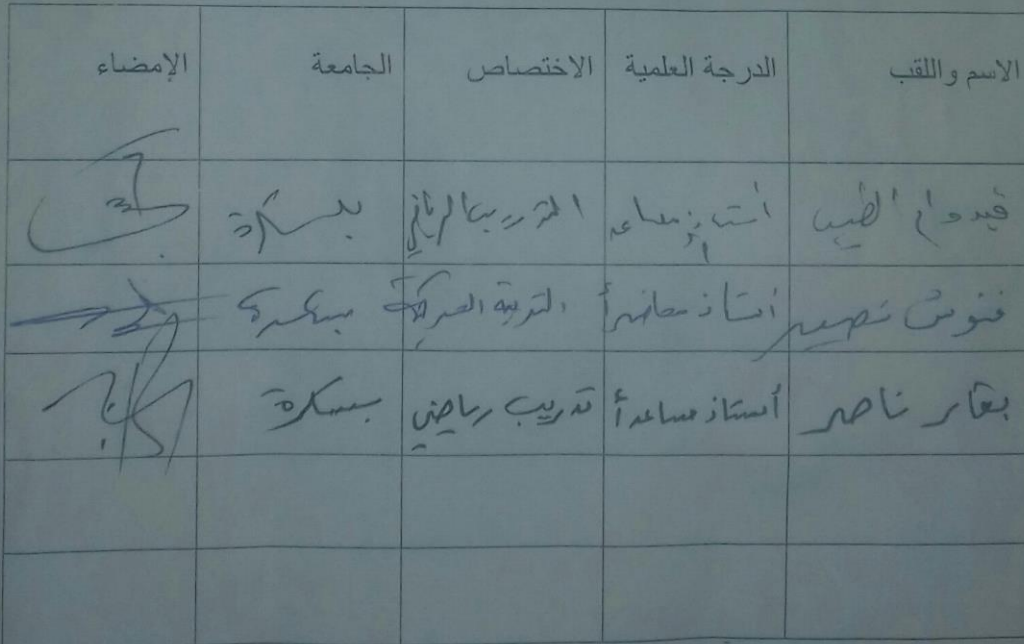 الاسم واللقب الدرجة العلمية الاختصاص الجامعة الإمضاء
الطيب أستاذ مساعد أ التدريب الرياضي بسكرة
فنوش نصير أستاذ محاضر أ التربية الحركية بسكرة
بقار ناصر أستاذ مساعد أ تدريب رياضي بسكرة